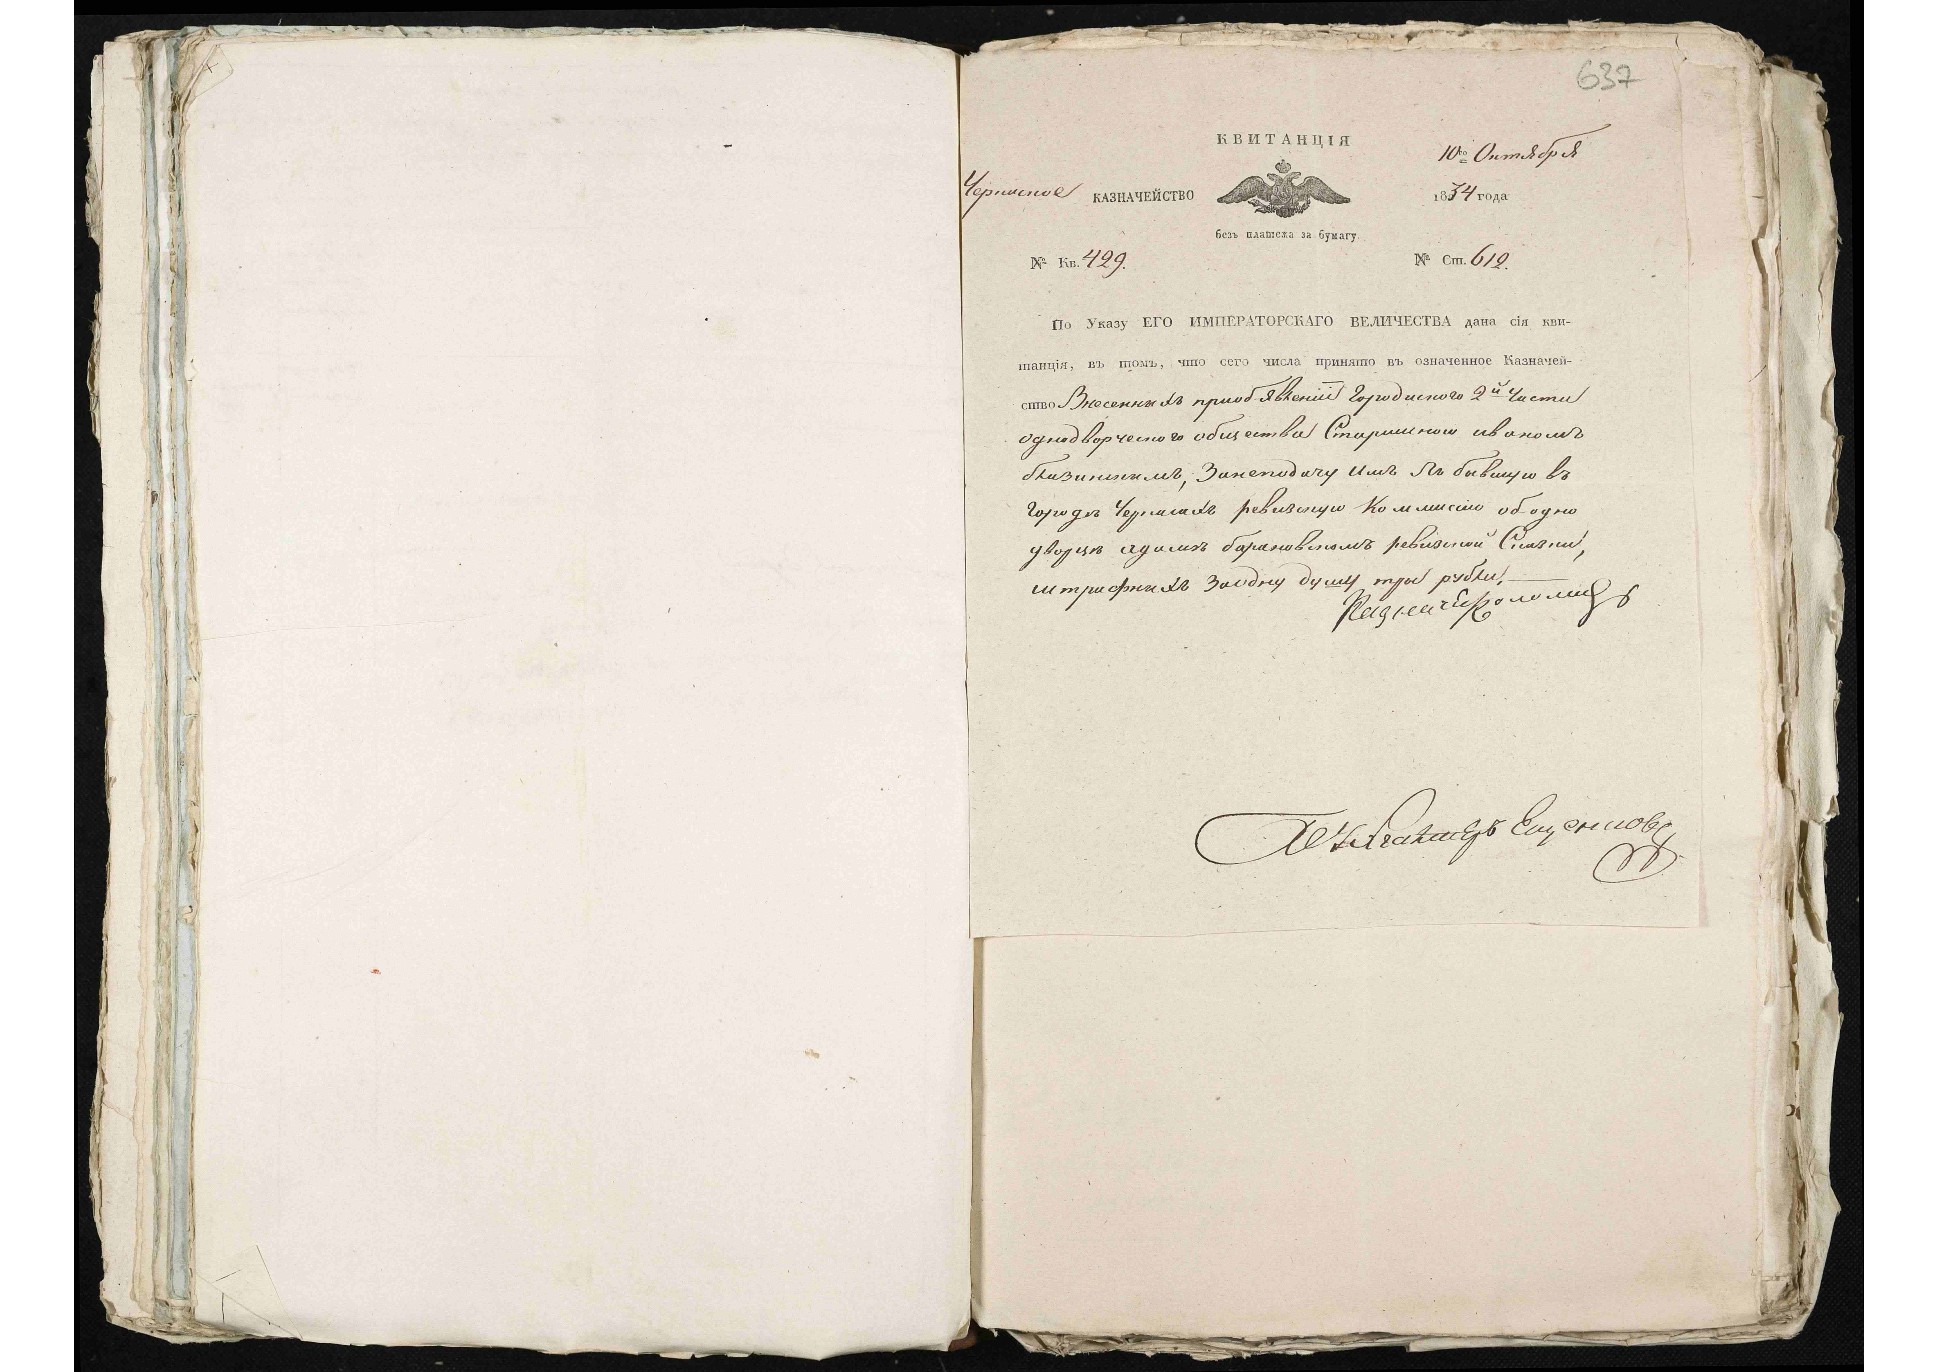 637
КВИТАНЦІЯ
10го Октября
Черкаское КАЗНАЧЕЙСТВО
1834 года
безъ платежа за бумагу
№ Кв. 429.
№ Ст. 612.
По Указу ЕГО ИМПЕРАТОРСКАГО ВЕЛИЧЕСТВА дана сія кви-
танція, въ томъ, что сего числа принято въ означенное Казначей-
ство Внесенныхъ приобявленіи Городиского 2й Части
однодворческого общества Старшиною иваномъ
Занеподачу имъ въ бывшую въ
городѣ Черкасахъ ревизскую Коммисію ободно
дворцѣ адамѣ барановскомъ ревизской Скаски,
штрафныхъ Заодну душу три рубли.
Казначей Коломиецъ